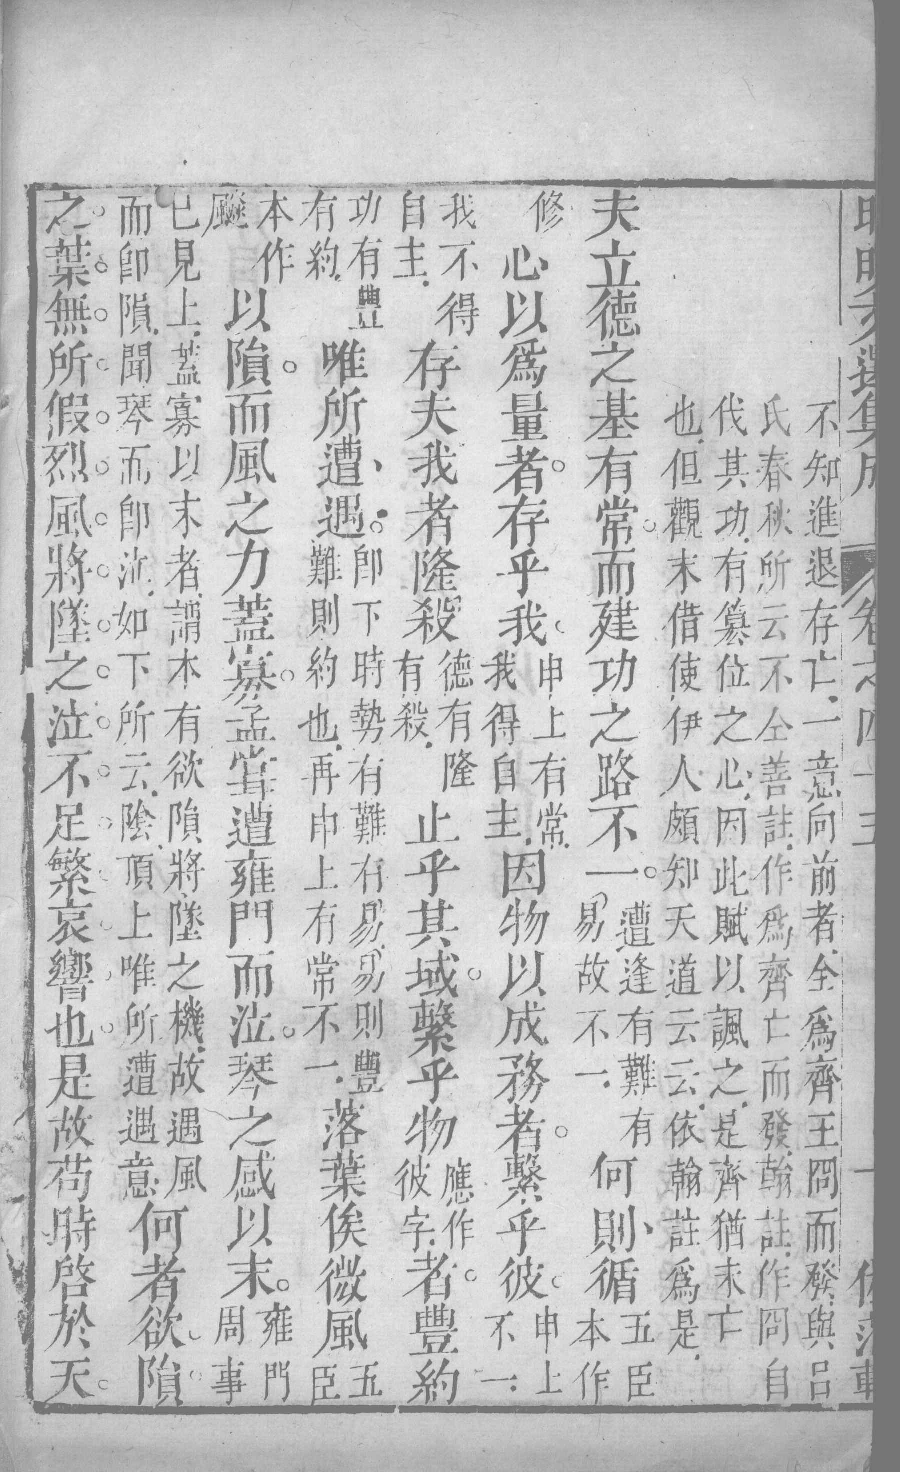 昭明文選集成 卷之四十
不知進退存亡一意向前者全爲齊王冏而發與呂
氏春秋所云不全善註作爲齊亡而發翰註作冏自
伐其功有簒位之心因此賦以諷之是齊猶未亡
也但觀末借使伊人頗知天道云云依翰註爲是
夫立德之基有常而建功之路不一遭逢有難有易故不一何則循五臣本作
修心以爲量者存乎我申上有常我得自主因物以成務者繫乎彼申上不一
我不得自主存夫我者隆殺德有隆有殺止乎其域繫乎物應作彼字者豐約
功有豐有約唯所遭遇卽下時勢有難有易易則豐難則約也再申上有常不一落葉俟微風五臣
本作飈以隕而風之力蓋寡孟嘗遭雍門而泣琴之感以末雍門周事
已見上蓋寡以末者謂本有欲隕將墜之機故遇風而卽隕聞琴而卽泣如下所云陰頂上唯所遭遇意何者欲隕
之葉無所假烈風將墜之泣不足繁哀響也是故苟時啓於天